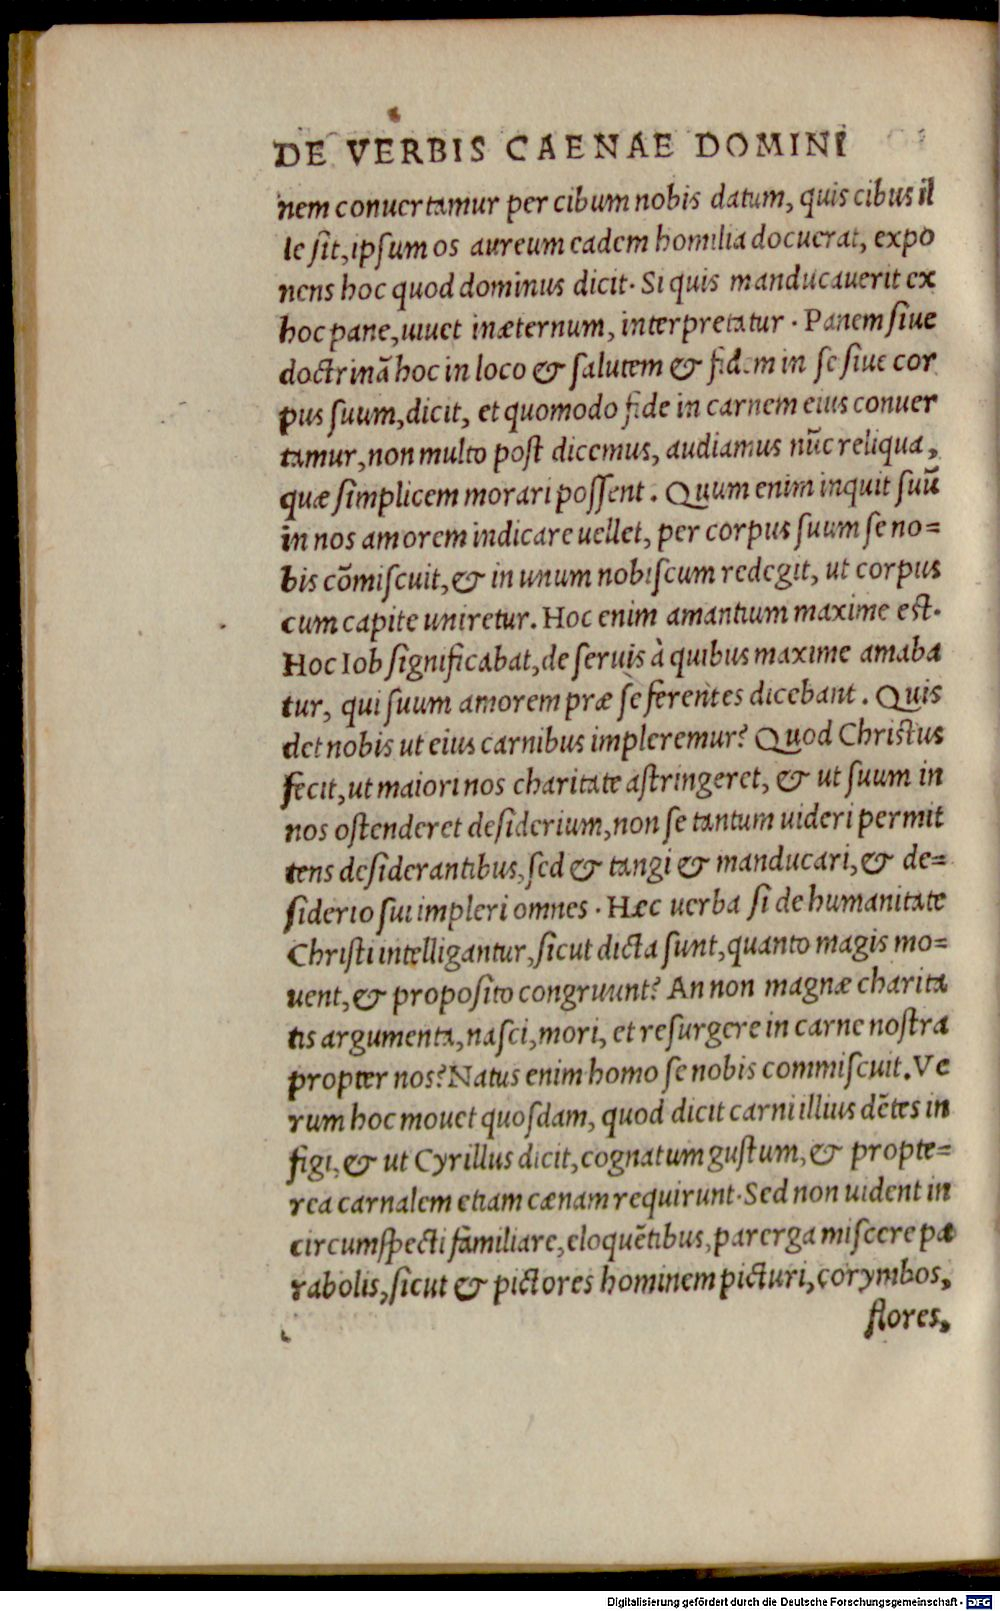 DE VERBIS CAENAE DOMINI
nem conuertamur per cibum nobis datum, quis cibus il
le sit, ipsum os aureum eadem homilia docuerat, expo
nens hoc quod dominus dicit. Si quis manducauerit ex
hoc pane, uiuet inæternum, interpretatur. Panem siue
doctrinā hoc in loco & salutem & fidem in se siue cor
pus suum, dicit, et quomodo fide in carnem eius conuer
tamur, non multo post dicemus, audiamus nūc reliqua,
quæ simplicem morari possent. Quum enim inquit suū
in nos amorem indicare uellet, per corpus suum se no=
bis cōmiscuit, & in unum nobiscum redegit, ut corpus
cum capite uniretur. Hoc enim amantium maxime est.
Hoc Iob significabat, de seruis à quibus maxime amaba
tur, qui suum amorem præ se ferentes dicebant. Quis
det nobis ut eius carnibus impleremur? Quod Christus
fecit, ut maiori nos charitate astringeret, & ut suum in
nos ostenderet desiderium, non se tantum uideri permit
tens desiderantibus, sed & tangi & manducari, & de=
siderio sui impleri omnes. Hæc uerba si de humanitate
Christi intelligantur, sicut dicta sunt, quanto magis mo=
uent, & proposito congruunt? An non magnæ charita
tis argumenta, nasci, mori, et resurgere in carne nostra
propter nos? Natus enim homo se nobis commiscuit. Ve
rum hoc mouet quosdam, quod dicit carni illius dētes in
figi, & ut Cyrillus dicit, cognatum gustum, & propte=
rea carnalem etiam cænam requirunt. Sed non uident in
circumspecti familiare, eloquētibus, parerga miscere pa
rabolis, sicut & pictores hominem picturi, corymbos,
flores,
Digitalisierung gefördert durch die Deutsche Forschungsgemeinschaft - DFG